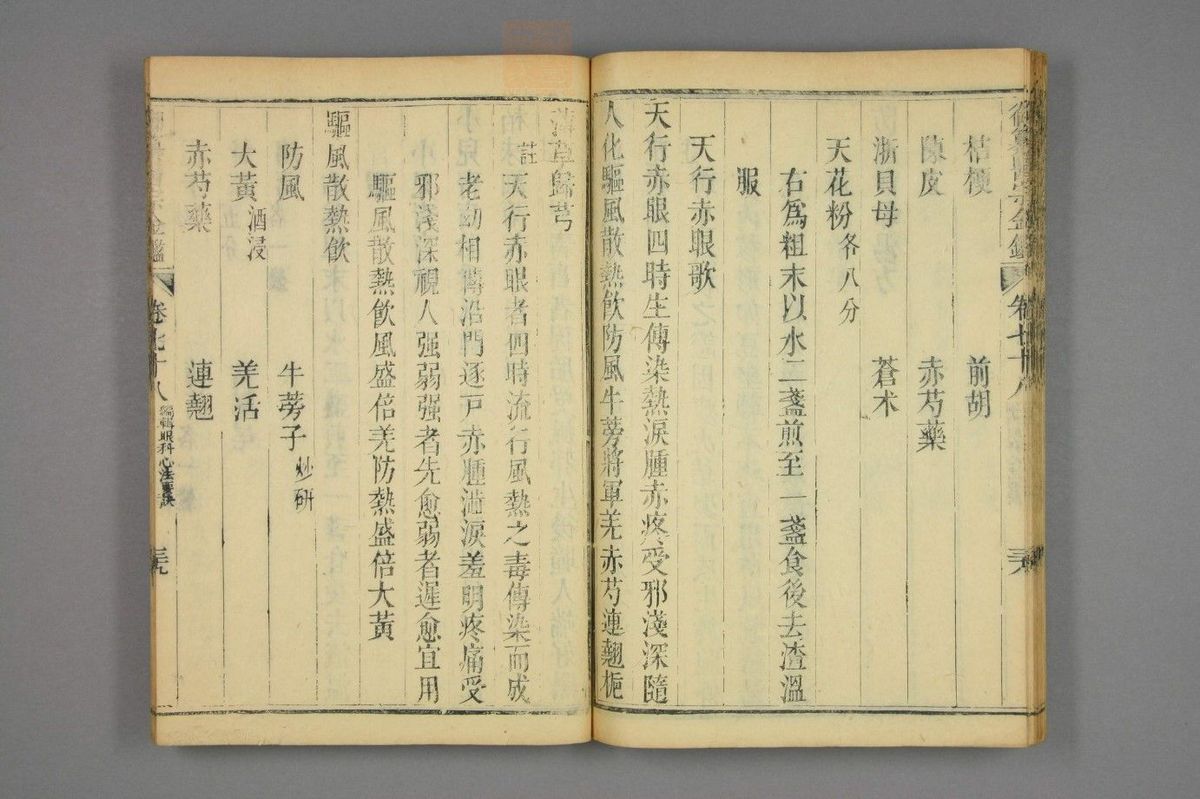 桔梗 前胡
陳皮 赤芍藥
浙貝母 蒼术
天花粉各八分
右爲粗末以水二盞煎至一盞食後去渣溫
服
天行赤眼歌
天行赤眼四時生傳染熱淚腫赤疼受邪淺深隨
人化驅風散熱飲防風牛蒡將軍羌赤芍連翹梔
薄草歸芎
註天行赤眼者四時流行風熱之毒傳染而成
老幼相傳沿門逐戸赤腫澁淚羞明疼痛受
邪淺深視人强弱强者先愈弱者遲愈宜用
驅風散熱飲風盛倍羌防熱盛倍大黃
驅風散熱飲
防風 牛蒡子炒研
大黃酒浸 羌活
赤芍藥 連翹
卷七十八 編輯眼科心法要訣 三九